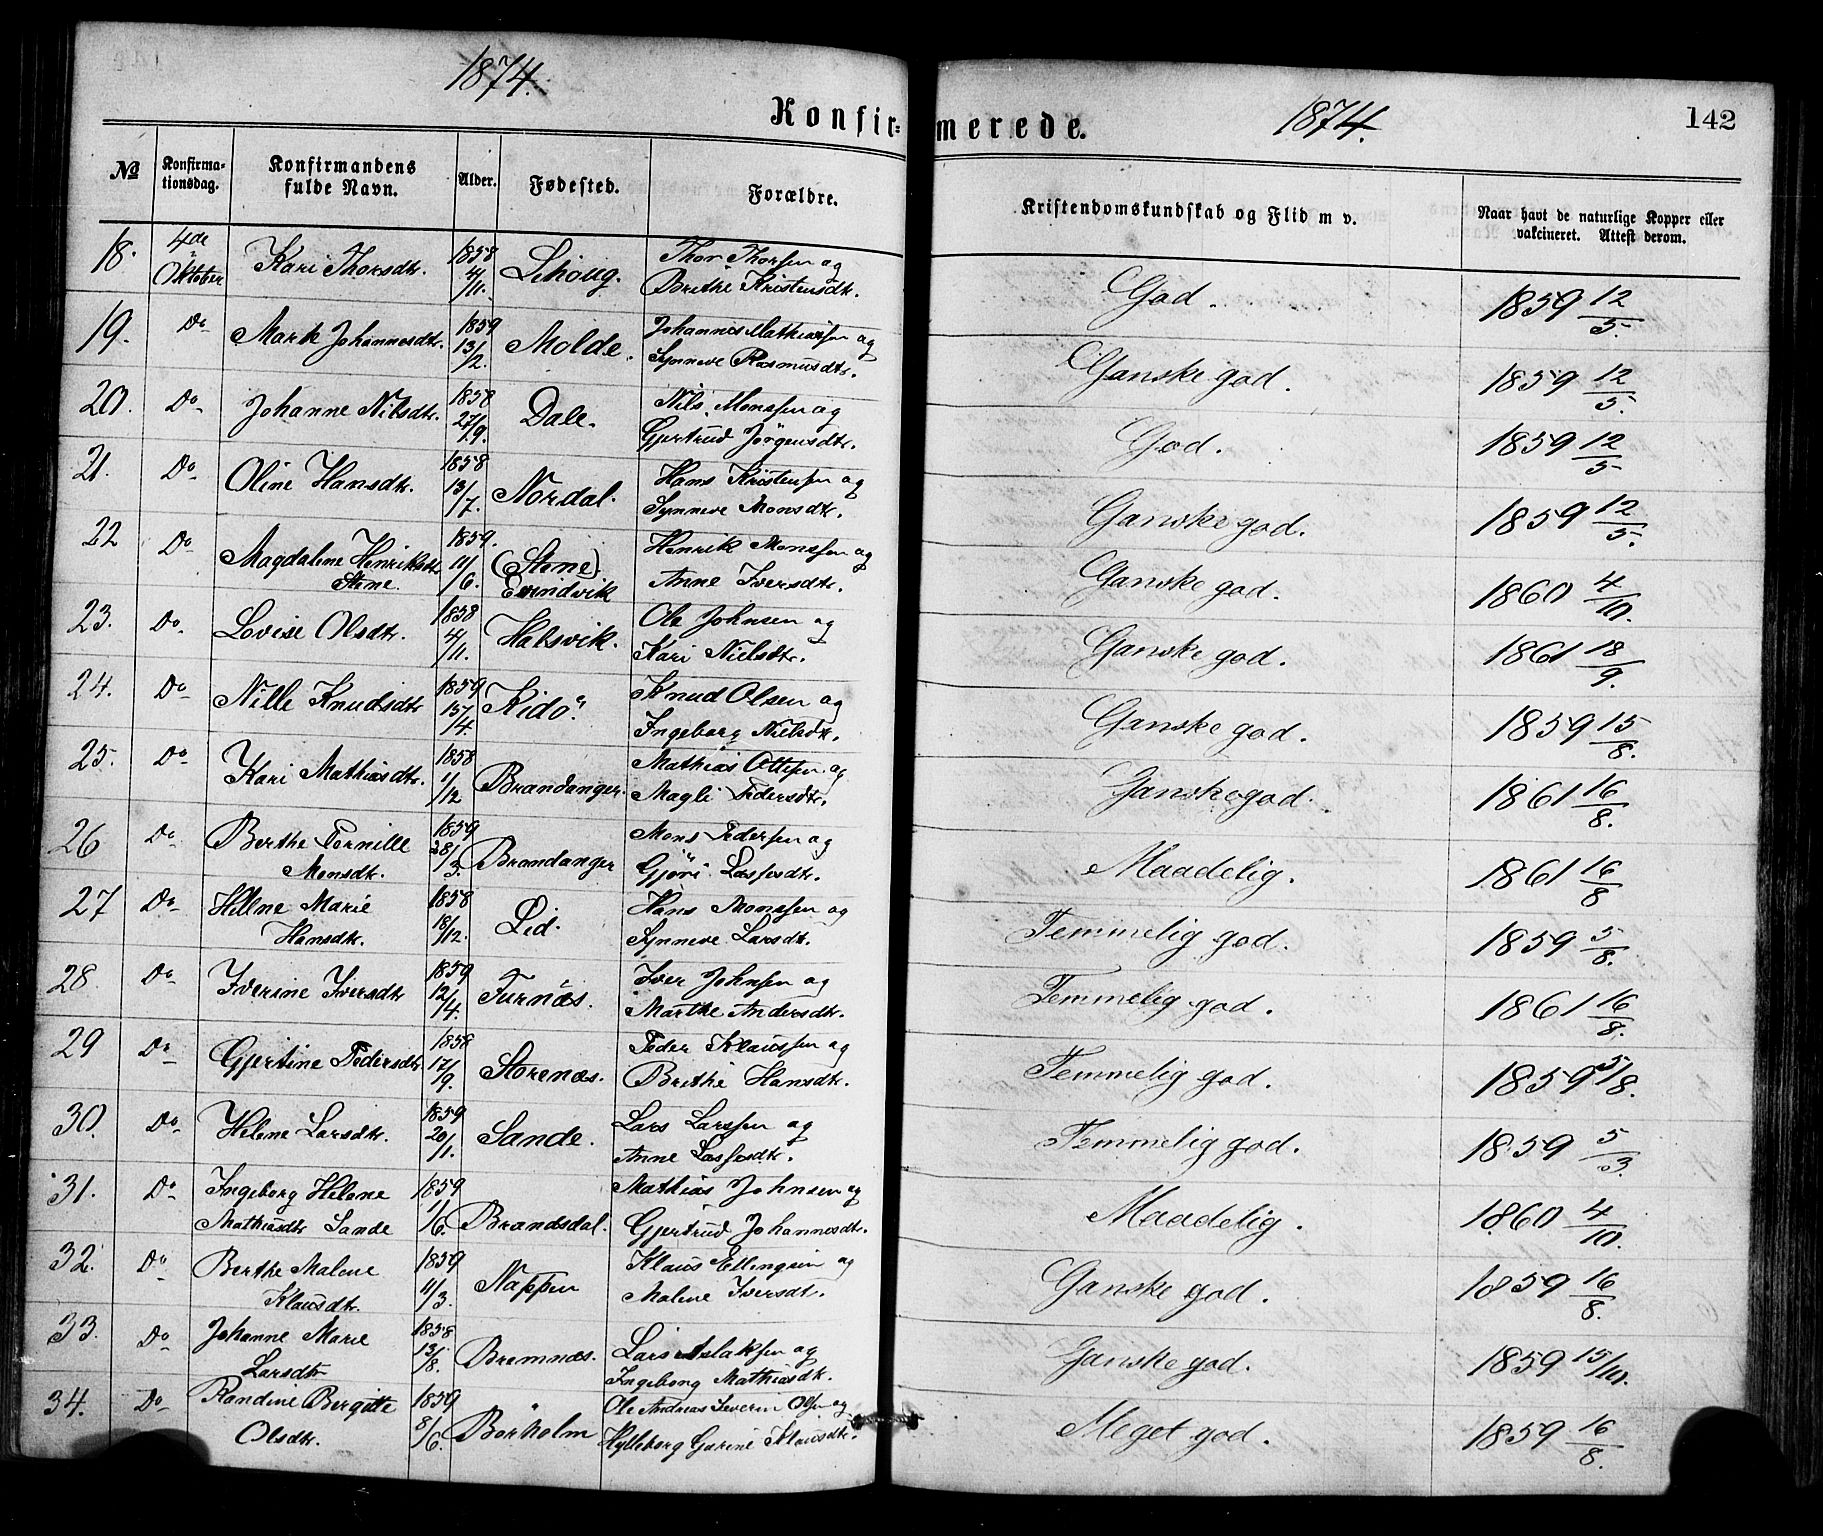 1874.
Konfir-
merede.
1874.
142
No
Konfirma-
tionsdag.
Konfirmandens
fulde Navn.
Alder.
Fødested.
Forældre.
Kristendomskundskab og Flid m v.
Naar havt de naturlige Kopper eller
vakcineret. Attest derom.
18. 4de Oktober Kari Thorsdtr. 1858 4/11. Lihoug. Thor Thorsen og Brithe Kristensdtr. God. 1859 12/5.
19. Do Marte Johannesdtr. 1859 13/2. Molde. Johannes Mathiassen og Synneve Rasmusdtr. Ganske god. 1859 12/5.
20. Do Johanne Nilsdtr. 1858 27/9. Dale. Nils Monssen og Gjertrud Jörgensdtr. God. 1859 12/5
21. Do Oline Hansdtr. 1858 13/7. Nordal. Hans Kristensen og Synneve Monsdtr. Ganske god. 1859 12/5.
22 Do Magdalene Henriksdtr Stene. 1859. 11/6. (Stene) Evindvik Henrik Monssen og Anne Iversdtr. Ganske god. 1860 4/10.
23. Do Lovise Olsdtr. 1858 4/11. Halsvik. Ole Johnsen og Kari Nielsdtr. Ganske god. 1861 18/9.
24. Do Nille Knudsdtr 1859 15/4. Kidö. Knud Olsen og Ingeborg Nielsdtr. Ganske god. 1859 15/8.
25. Do Kari Mathiasdtr. 1858 1/12 Brandanger. Mathias Ottesen og Magli Pedersdtr. Ganske god. 1861 16/8.
26 Do Berthe Pernille Monsdtr. 1859 28/3. Brandanger Mons Pedersen og Gjöri Lasfesdtr. Maadelig. 1861 16/8
27 Do Hellne Marie Hansdtr. 1858 18/12. Lid. Hans Monssen og Synneve Larsdtr. Temmelig god. 1859 5/8.
28. Do Iverine Iversdtr 1859 12/4. Furnæs. Iver Johnsen og Marthe Andersdtr. Temmelig god. 1861 16/8.
29 Do Gjertine Pedersdtr 1858 17/9. Storenæs. Peder Klaussen og Brithe Hansdtr. Temmelig god. 1859 5/8.
30. Do Helene Larsdtr. 1859 20/1. Sande. Lars Larssen og Anne Lasfesdtr. Temmelig god. 1859 5/3.
31. Do Ingeborg Helene Mathiasdtr Sande 1859 1/6. Brandsdal. Mathias Johnsen og Gjertrud Johannesdtr. Maadelig. 1860 4/10.
32. Do Berthe Malene Klausdtr. 1859 11/3. Nappen Klaus Ellingsen og Malene Iversdtr. Ganske god. 1859 16/8.
33. Do Johanne Marie Larsdtr 1858 13/8. Bremnæs. Lars Aslaksen og Ingeborg Mathiasdtr. Ganske god. 1859 15/10.
34. Do Randine Bergitte Olsdtr. 1859 8/6. Borholm Ole Andreas Severin Olsen og Hylleborg Gurine Klausdtr. Meget god. 1859 16/8.